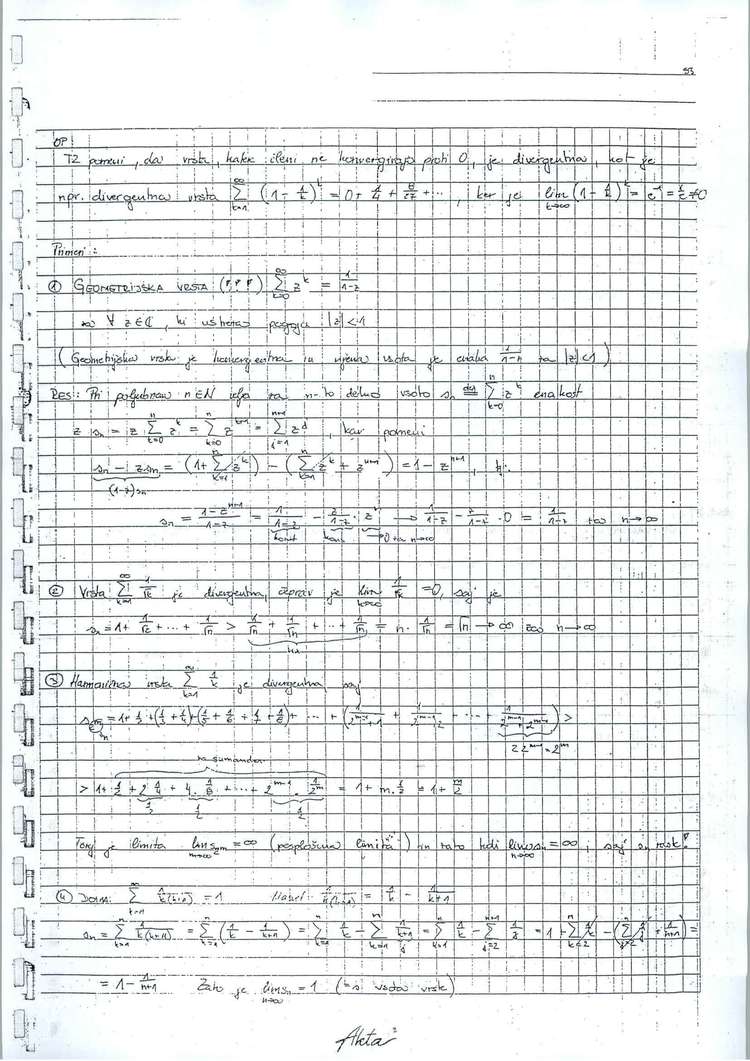 53
OP:
TZ pomeni, da vrsta, katere členi ne konvergirajo proti 0, je divergentna, kot je
npr. divergentna vrsta \sum_{k=1}^{∞} (1 - 1/k)^k = 0 + 1/4 + 8/27 + ..., ker je lim_{k→∞} (1 - 1/k)^k = e^{-1} = 1/e ≠ 0
Primeri:
① GEOMETRIJSKA VRSTA (!, !, !) \sum_{k=0}^{∞} z^k = 1/(1-z)
za ∀ z ∈ ℂ, ki ustreza pogoju |z| < 1
(Geometrijska vrsta je konvergentna in njena vsota je enaka 1/(1-z) za |z| < 1)
RES: Pri poljubnem n ∈ N velja za n-to delno vsoto s_n def= \sum_{k=0}^{n} z^k enakost
z s_n = z \sum_{k=0}^{n} z^k = \sum_{k=0}^{n} z^{k+1} = \sum_{j=1}^{n+1} z^j, kar pomeni
s_n - z s_n = (1 + \sum_{k=1}^{n} z^k) - (\sum_{k=1}^{n} z^k + z^{n+1}) = 1 - z^{n+1}, tj.
(1-z) s_n
s_n = (1 - z^{n+1})/(1-z) = 1/(1-z) - z/(1-z) · z^n → 1/(1-z) - z/(1-z) · 0 = 1/(1-z) za n→∞
konst konst →0 za n→∞
② Vrsta \sum_{k=1}^{∞} 1/√k je divergentna, čeprav je lim_{k→∞} 1/√k = 0, saj je
s_n = 1 + 1/√2 + ... + 1/√n > 1/√n + 1/√n + ... + 1/√n = n · 1/√n = √n → ∞ za n→∞
nx
③ Harmonična vrsta \sum_{k=1}^{∞} 1/k je divergentna, saj
s_{2^m} = 1 + 1/2 + (1/3 + 1/4) + (1/5 + 1/6 + 1/7 + 1/8) + ... + (1/(2^{m-1}+1) + 1/(2^{m-1}+2) + ... + 1/(2^{m-1}+2^{m-1})) >
2·2^{m-1} = 2^m
m sumandov
> 1 + 1/2 + 2·1/4 + 4·1/8 + ... + 2^{m-1} · 1/2^m = 1 + m·1/2 = 1 + m/2
1/2 1/2 1/2
Torej je limita lim_{m→∞} s_{2^m} = ∞ (posplošena limita) in zato tudi lim_{n→∞} s_n = ∞, saj s_n rast.!
④ DOMA: \sum_{k=1}^{∞} 1/(k(k+1)) = 1 1/(k(k+1)) = 1/k - 1/(k+1)
s_n = \sum_{k=1}^{n} 1/(k(k+1)) = \sum_{k=1}^{n} (1/k - 1/(k+1)) = \sum_{k=1}^{n} 1/k - \sum_{k=1}^{n} 1/(k+1) = \sum_{k=1}^{n} 1/k - \sum_{j=2}^{n+1} 1/j = 1 + \sum_{k=2}^{n} 1/k - (\sum_{j=2}^{n} 1/j + 1/(n+1)) =
= 1 - 1/(n+1) Zato je lim_{n→∞} s_n = 1 (= s vsota vrste)
Akta